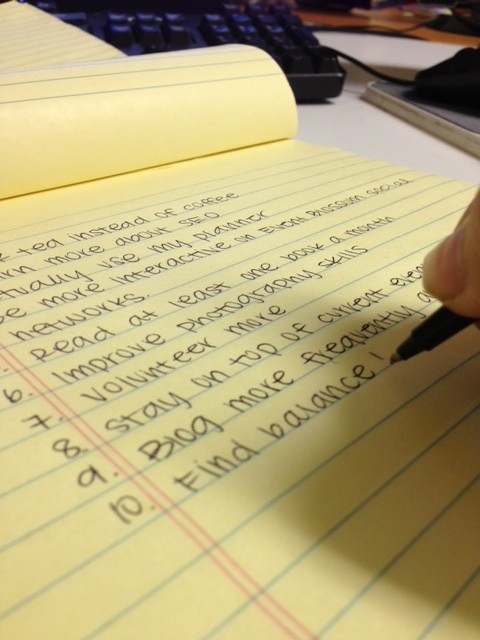 tea instead of coffee
more about SEO
use my planner
more interactive on Event Blossom social
networks.
Read at least one book a month
6. Improve photography skills
7. Volunteer more
8. Stay on top of current
9. Blog more frequently
10. Find balance!